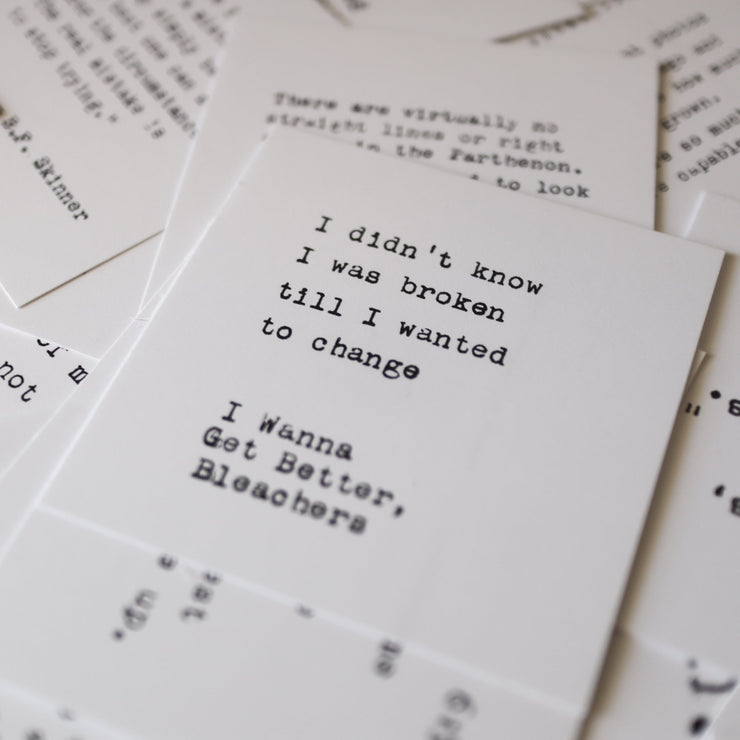 simply b
but one can a
the circumstanc
The real mistake is
to stop trying."
B.F. Skinner
There are virtually no
straight lines or right
in the Parthenon.
to look
photos
how much
grown.
so much
capable
not
I didn't know
I was broken
till I wanted
to change
I Wanna
Get Better,
Bleachers
up.